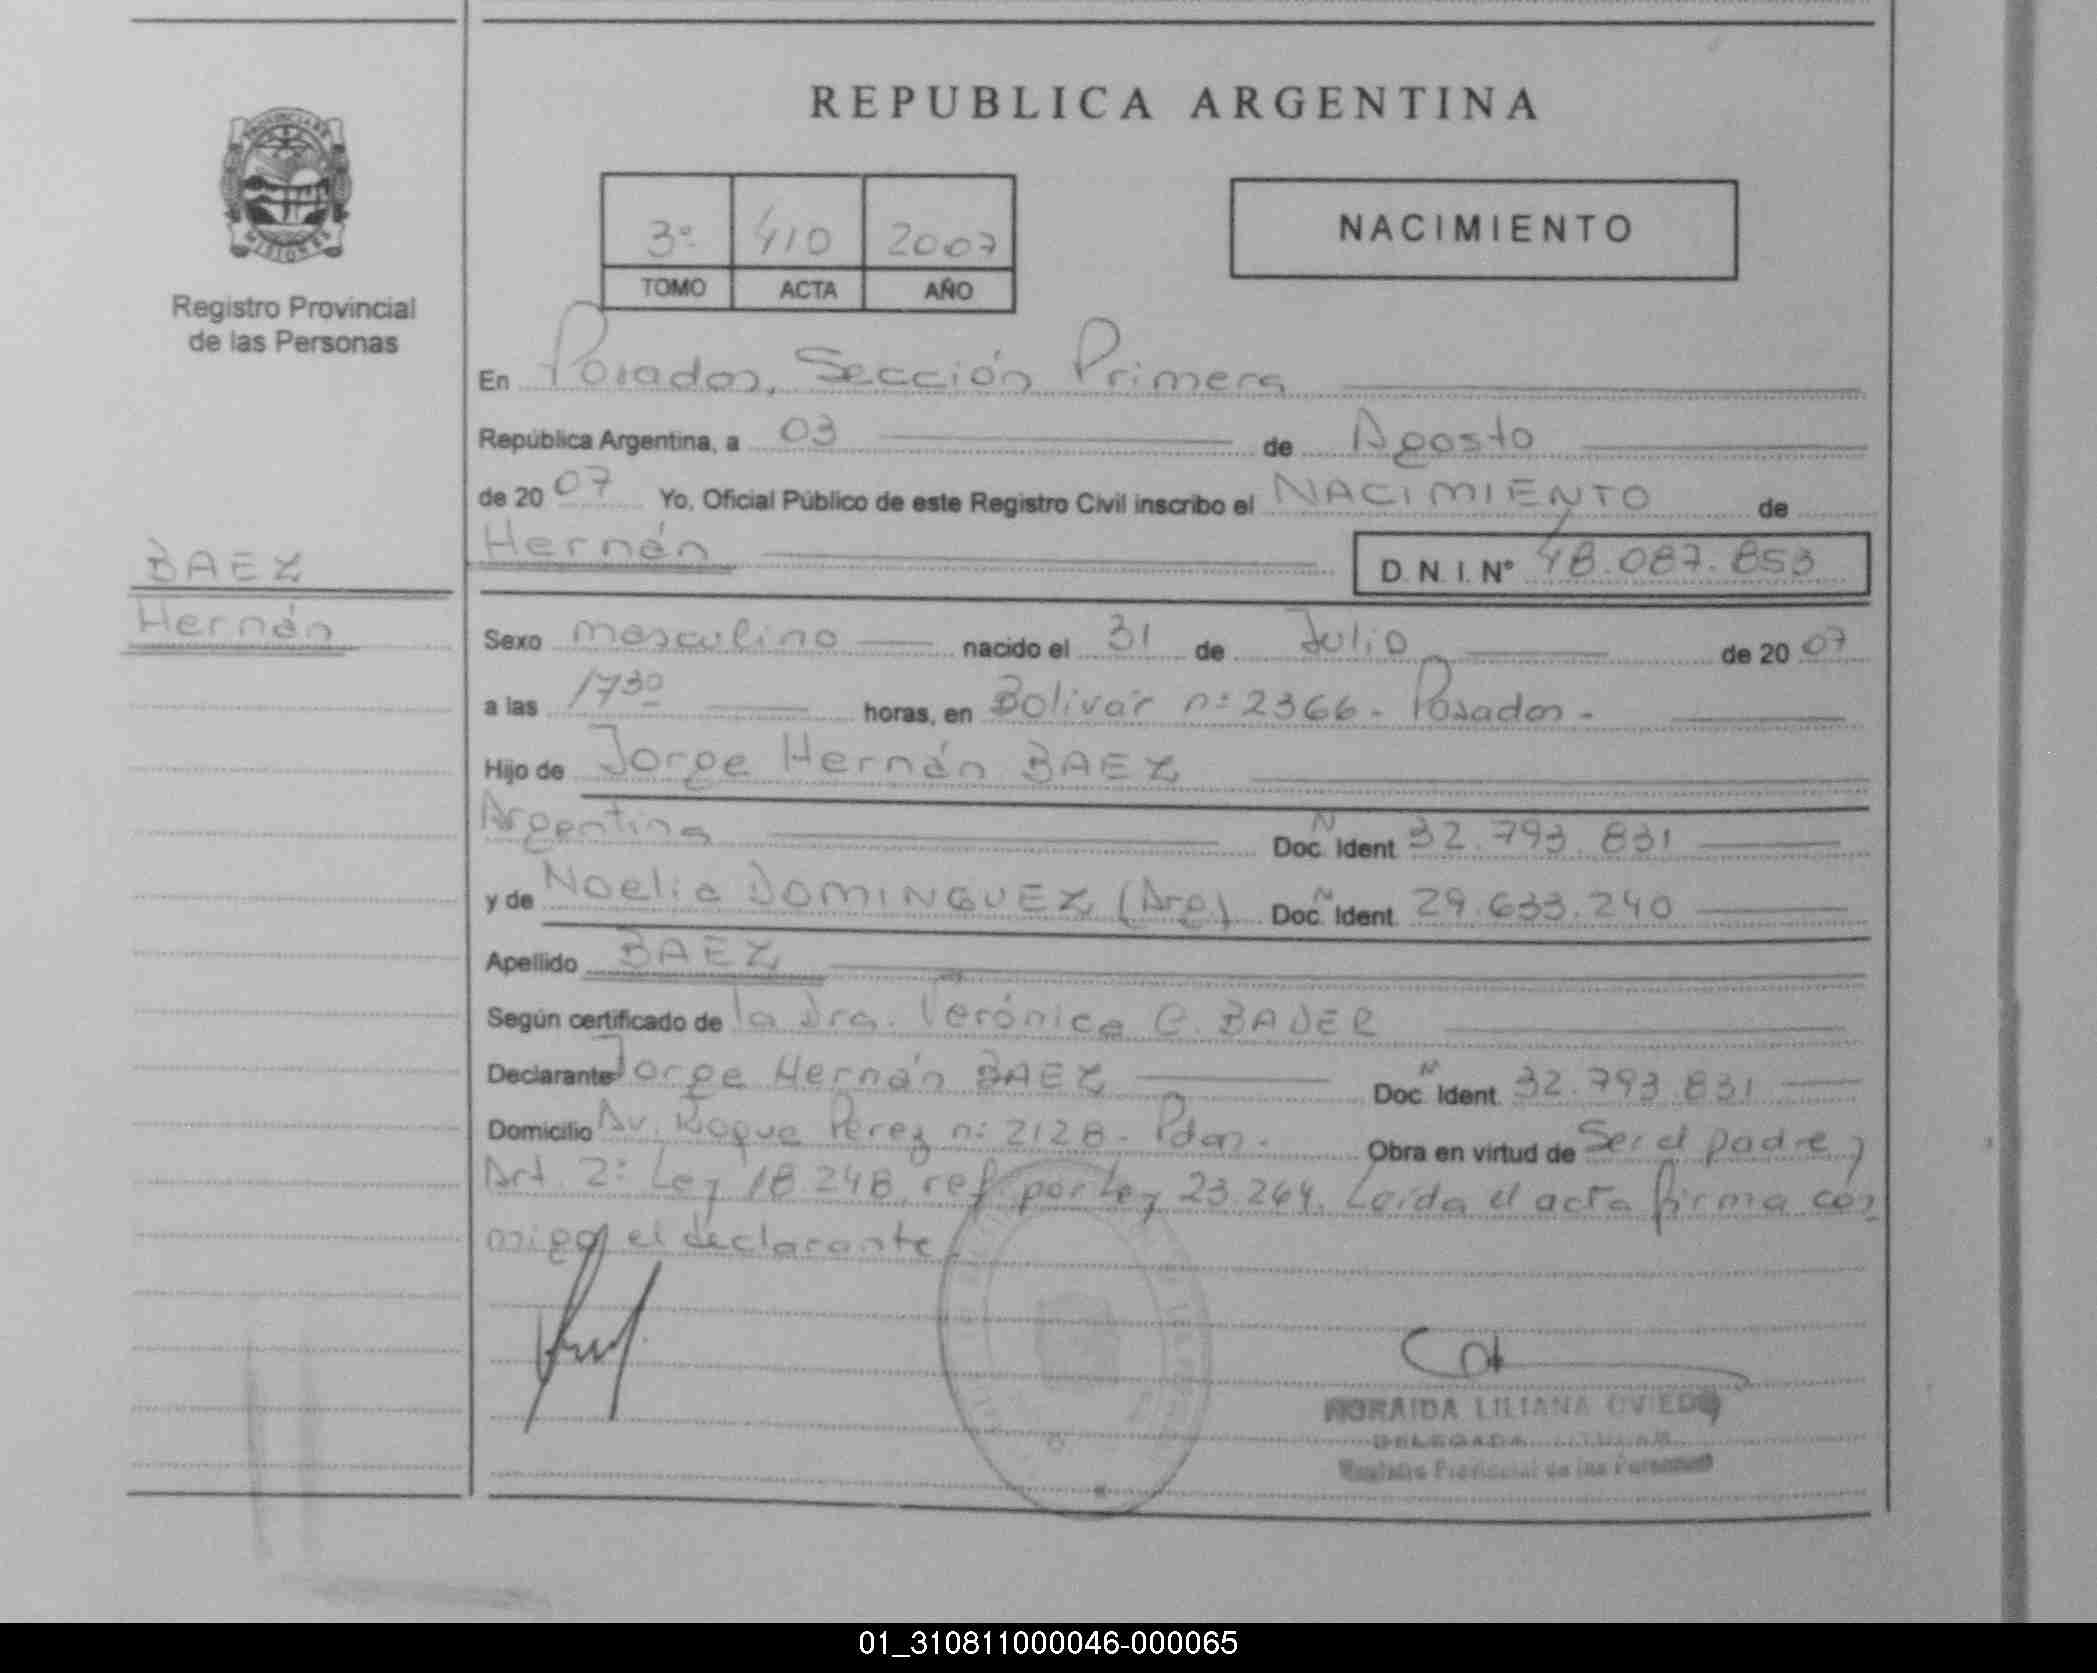 REPUBLICA ARGENTINA
PROVINCIA DE
MISIONES
Registro Provincial
de las Personas
3º 410 2007
TOMO ACTA AÑO
NACIMIENTO
En Posadas, Sección Primera
República Argentina, a 03 de Agosto
de 2007 Yo, Oficial Público de este Registro Civil inscribo el NACIMIENTO de
Hernán D.N.I. Nº 48.087.853
BAEZ
Hernán
Sexo masculino nacido el 31 de Julio de 2007
a las 17 30 horas, en Bolivar nº 2366 - Posadas -
Hijo de Jorge Hernán BAEZ
Argentina Doc. Ident. 32.793.831
y de Noelia DOMINGUEZ (Arg) Doc. Ident. 29.633.240
Apellido BAEZ
Según certificado de la Dra. Verónica C. BADER
Declarante Jorge Hernán BAEZ Doc. Ident. 32.793.831
Domicilio Av. Roque Perez nº 2128 - Pdas. Obra en virtud de Ser el padre y
Art. 2º Ley 18.248 ref. por Ley 23.264. Leída el acta firma con
migo el declarante.
LILIANA OVIEDO
DELEGADA TITULAR
Registro Provincial de las Personas
01_310811000046-000065